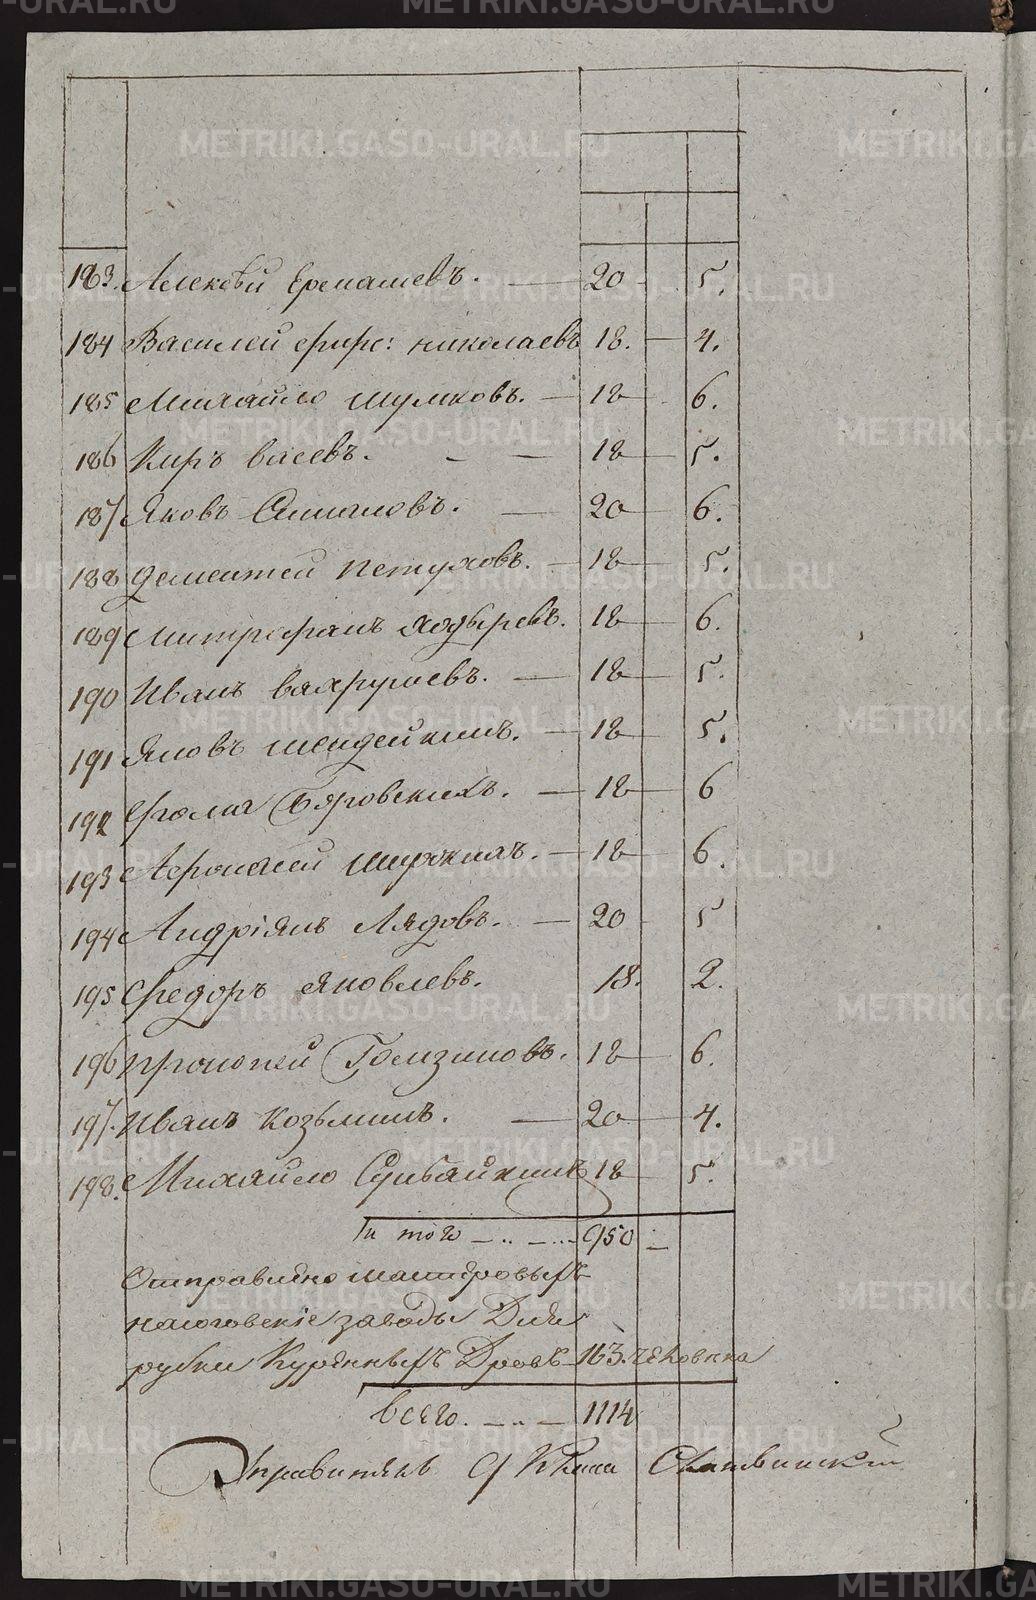 METRIKI.GASO-URAL.RU
183. Алексѣй Ермашевъ. — 20 - 5.
184 Василей фирс: николаевъ 18. — 4.
185 Михайло шумковъ. — 18 - 6.
186 Киръ васевъ. - — 18 — 5.
187 Яковъ — 20 — 6.
188 Дементей Петуховъ. — 18 — 5.
189 Митрофанъ Ходыревъ. 18 — 6.
190 Иванъ вахрушевъ. — 18 — 5.
191 Яковъ шендейкинъ. — 18 — 5.
192 Фома Боровскихъ. — 18 — 6
193 Афонасей — 18 — 6.
194 Андріянъ Лядовъ. — 20 - 5
195 Федоръ Яковлевъ. 18. 2.
196 Прокопей Голзиновъ. 18 — 6.
197. Иванъ козьминъ. — 20 — 4.
198. Михайло 18 — 5.
И того — .. — ... 950 —
Отправлено мастеровыхъ
заводы Для
рубки Куренныхъ Дровъ 163. человека
Всего. — .. — 1114
Управитель